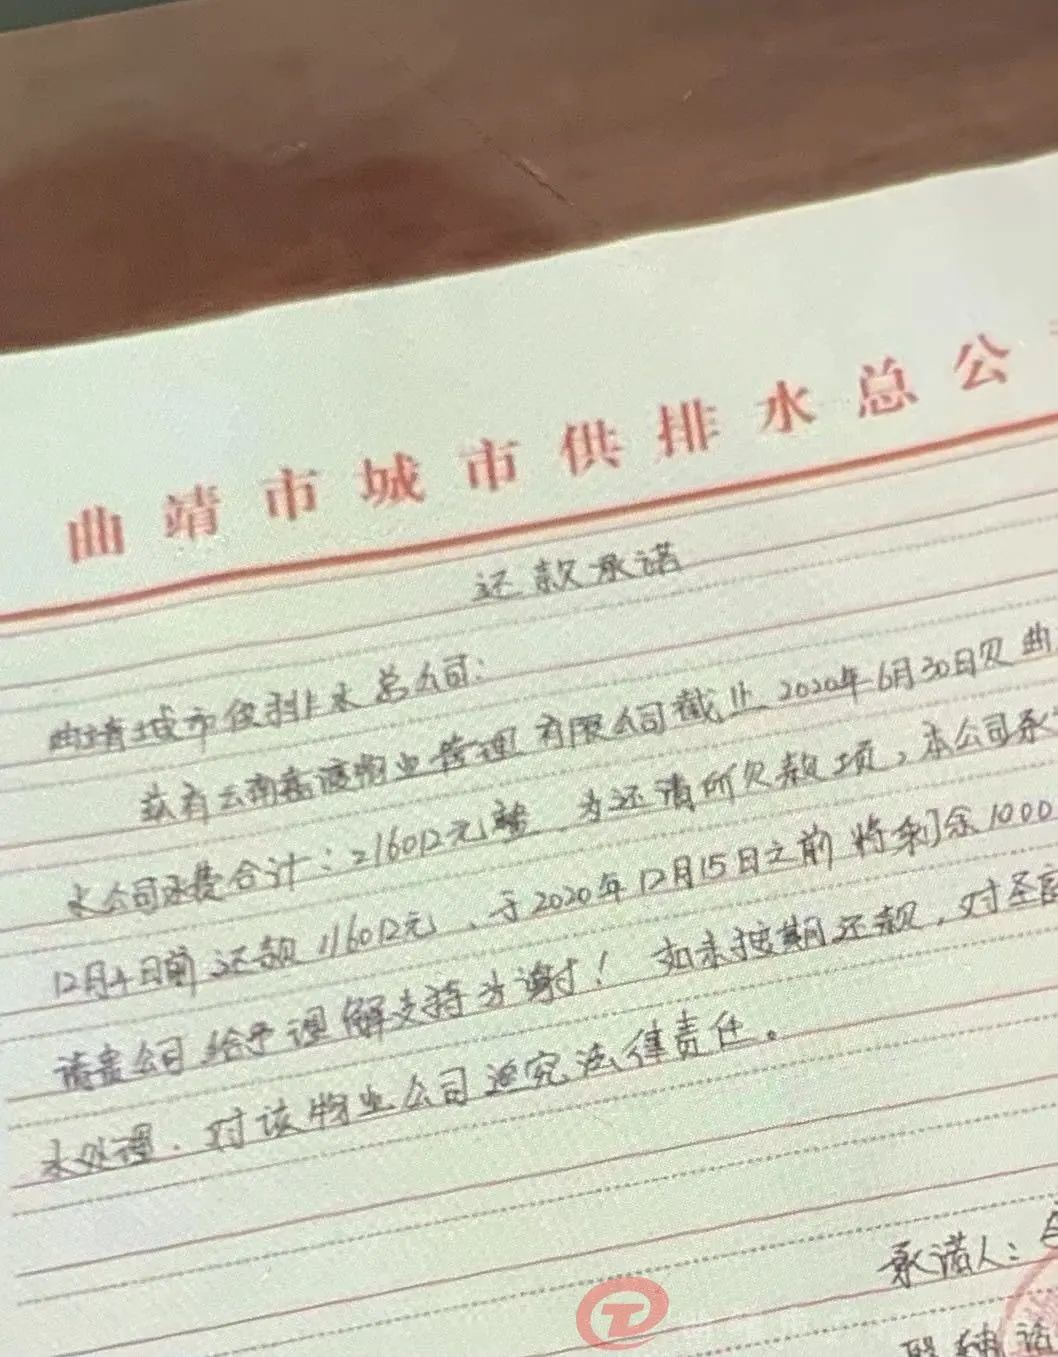 曲靖市城市供排水总公
还款承诺
曲靖城市供排水总公司:
兹有云南 物业管理有限公司截止2020年6月30日欠曲
水公司水费合计:216012元整,为还清所欠款项,本公司承
12月4日前还款116012元,于2020年12月15日之前将剩余1000
请贵公司给予理解支持为谢!如未按期还款,对圣
水处理,对该物业公司追究法律责任。
承诺人:
联系电话